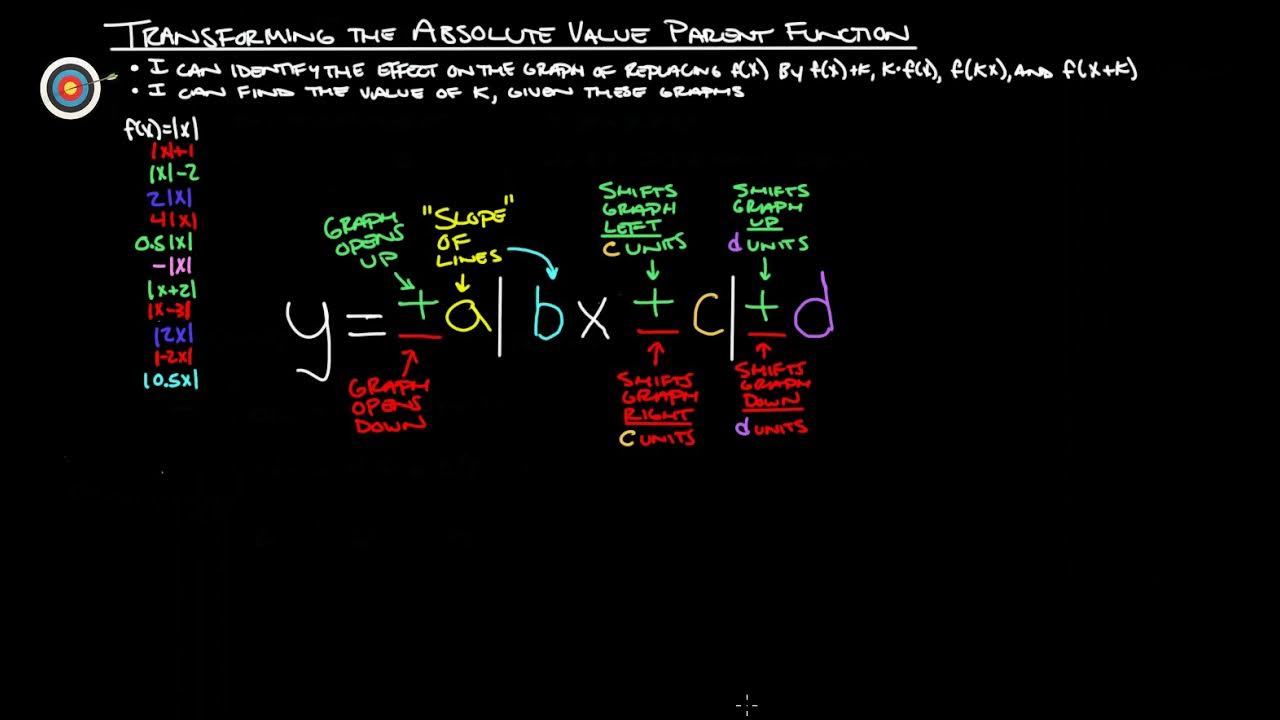 TRANSFORMING THE ABSOLUTE VALUE PARENT FUNCTION
• I CAN IDENTIFY THE EFFECT ON THE GRAPH OF REPLACING f(x) BY f(x)+K, K·f(x), f(Kx), AND f(x+K)
• I CAN FIND THE VALUE OF K, GIVEN THESE GRAPHS
f(x)=|x|
|x|+1
|x|-2
2|x|
4|x|
0.5|x|
-|x|
|x+2|
|x-3|
|2x|
|-2x|
|0.5x|
GRAPH
OPENS
UP
"SLOPE"
OF
LINES
SHIFTS
GRAPH
LEFT
C UNITS
SHIFTS
GRAPH
UP
d UNITS
y = ± a | b x ± c | ± d
GRAPH
OPENS
DOWN
SHIFTS
GRAPH
RIGHT
C UNITS
SHIFTS
GRAPH
DOWN
d UNITS